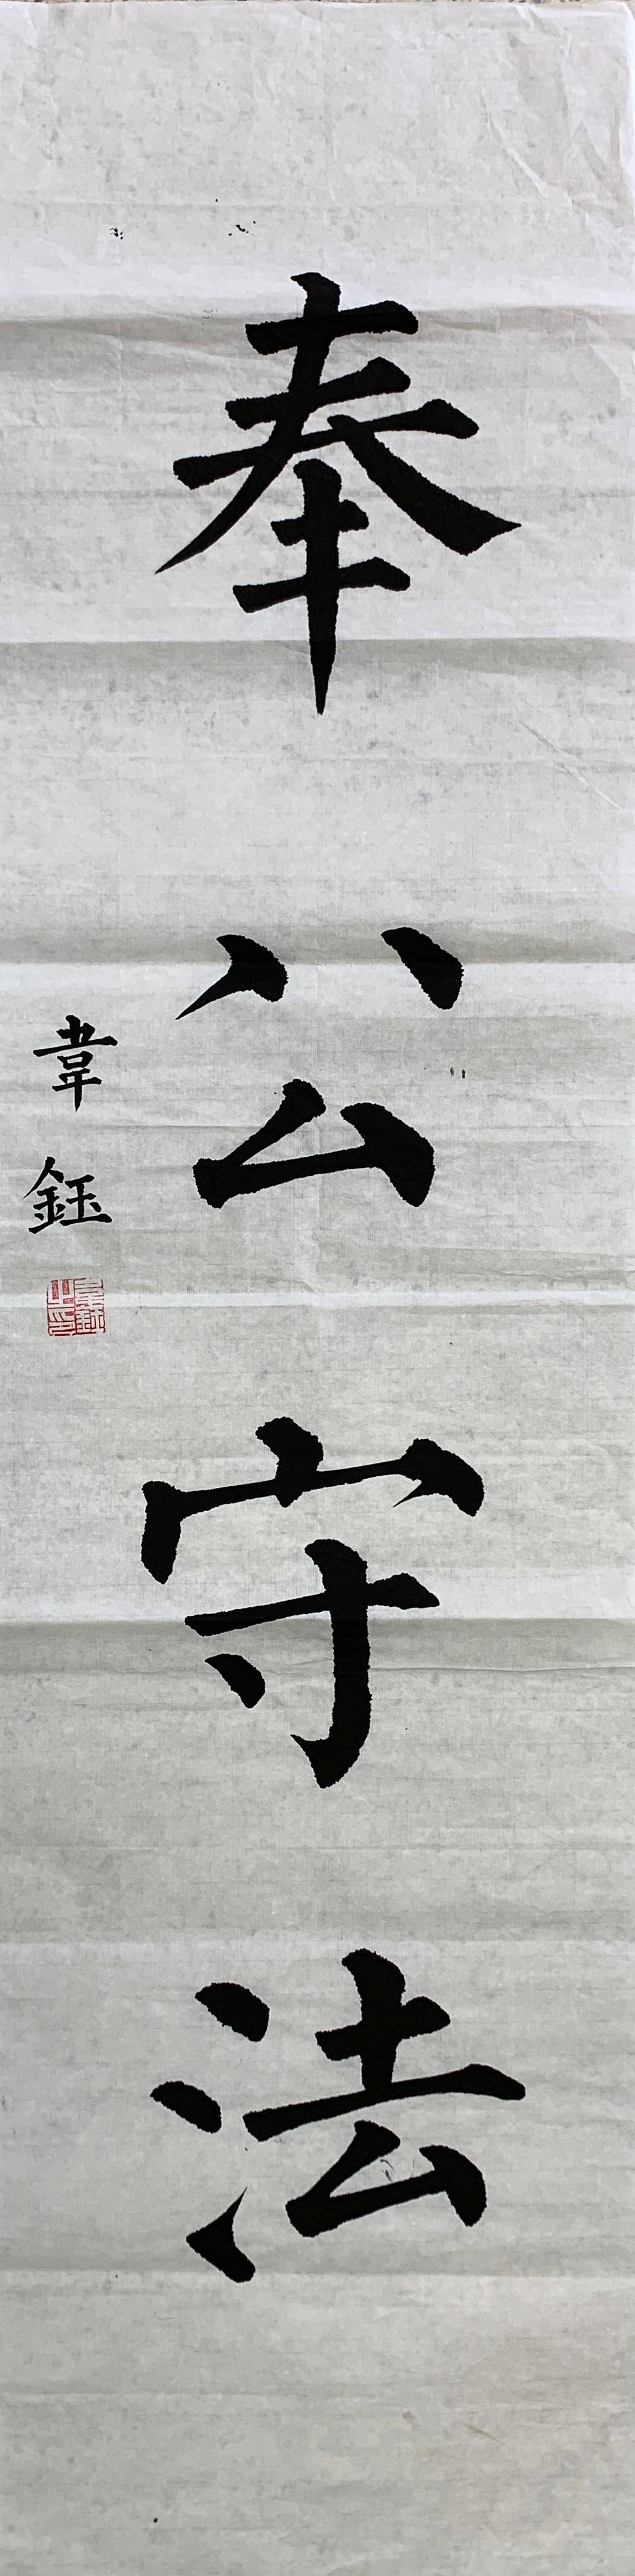 奉公守法
韋鈺